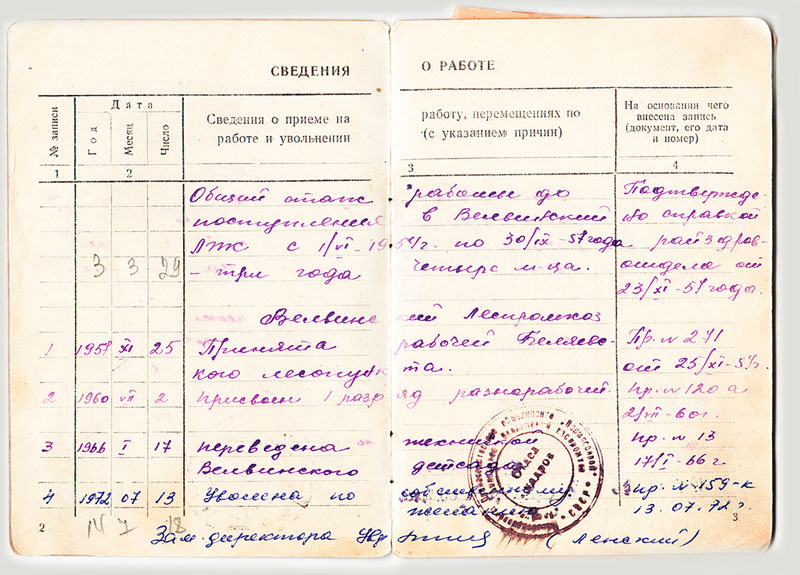 СВЕДЕНИЯ О РАБОТЕ
№ записи
Дата
Год
Месяц
Число
Сведения о приеме на работу, перемещениях по
работе и увольнении (с указанием причин)
На основании чего
внесена запись
(документ, его дата
и номер)
1 2 3 4
Общий стаж работы до Подтвержде-
поступления в Велвинский но справкой
ЛЖК с 1/VI-1954г. по 30/IX-57 года райздрав-
3 3 29 - три года четыре м-ца. отдела от
23/XI-57 года.
Велвинский Леспромхоз
1 1957 XI 25 Принята рабочей Беляевс- Пр. № 271
кого лесопунк та. от 25/XI-57г.
2 1960 VII 2 Присвоен 1 разряд разнорабочей. Пр. № 120 а
2/VII-60г.
3 1966 I 17 переведена технич кой Пр. № 13
Велвинского детсада 17/I-66 г.
4 1972 07 13 Уволена по собственному Пр. № 159-к
желанию 13.07.72г.
2 3
IV 7 18
Зам. директора (Ленский)
ОТДЕЛ
КАДРОВ
СССР